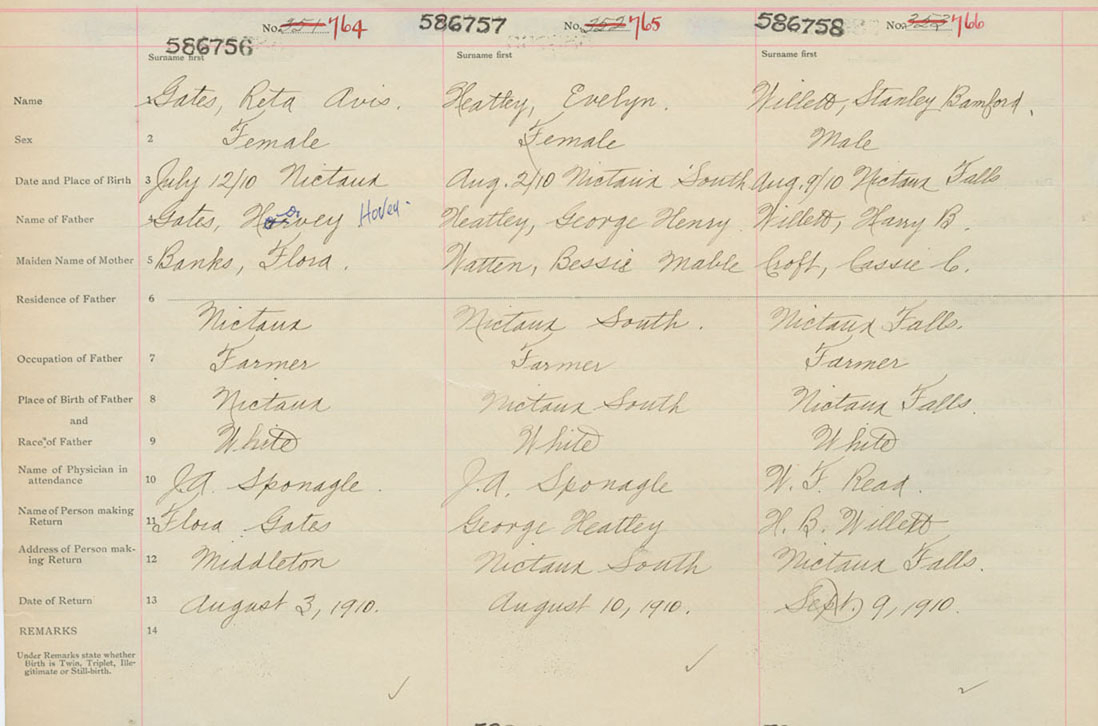 No. 351 764 586757 No. 352 765 586758 No. 353 766
586756
Surname first Surname first Surname first
Name 1 Gates, Reta Avis. Heatley, Evelyn. Willett, Stanley Bamford.
Sex 2 Female Female Male
Date and Place of Birth 3 July 12/10 Nictaux Aug. 2/10 Nictaux South Aug. 9/10 Nictaux Falls
Name of Father 4 Gates, Harvey Gates, Heatley, George Henry Willett, Harry B.
Maiden Name of Mother 5 Banks, Flora. Watten, Bessie Mable Croft, Cassie C.
Residence of Father 6
Nictaux Nictaux South. Nictaux Falls.
Occupation of Father 7 Farmer Farmer Farmer
Place of Birth of Father 8 Nictaux Nictaux South Nictaux Falls.
and
Race of Father 9 White White White
Name of Physician in
attendance 10 J.A. Sponagle. J.A. Sponagle W. F. Read.
Name of Person making
Return 11 Flora Gates George Heatley H. B. Willett
Address of Person mak-
ing Return 12 Middleton Nictaux South Nictaux Falls.
Date of Return 13 August 3, 1910. August 10, 1910. Sept. 9, 1910.
REMARKS 14
Under Remarks state whether
Birth is Twin, Triplet, Ille-
gitimate or Still-birth.